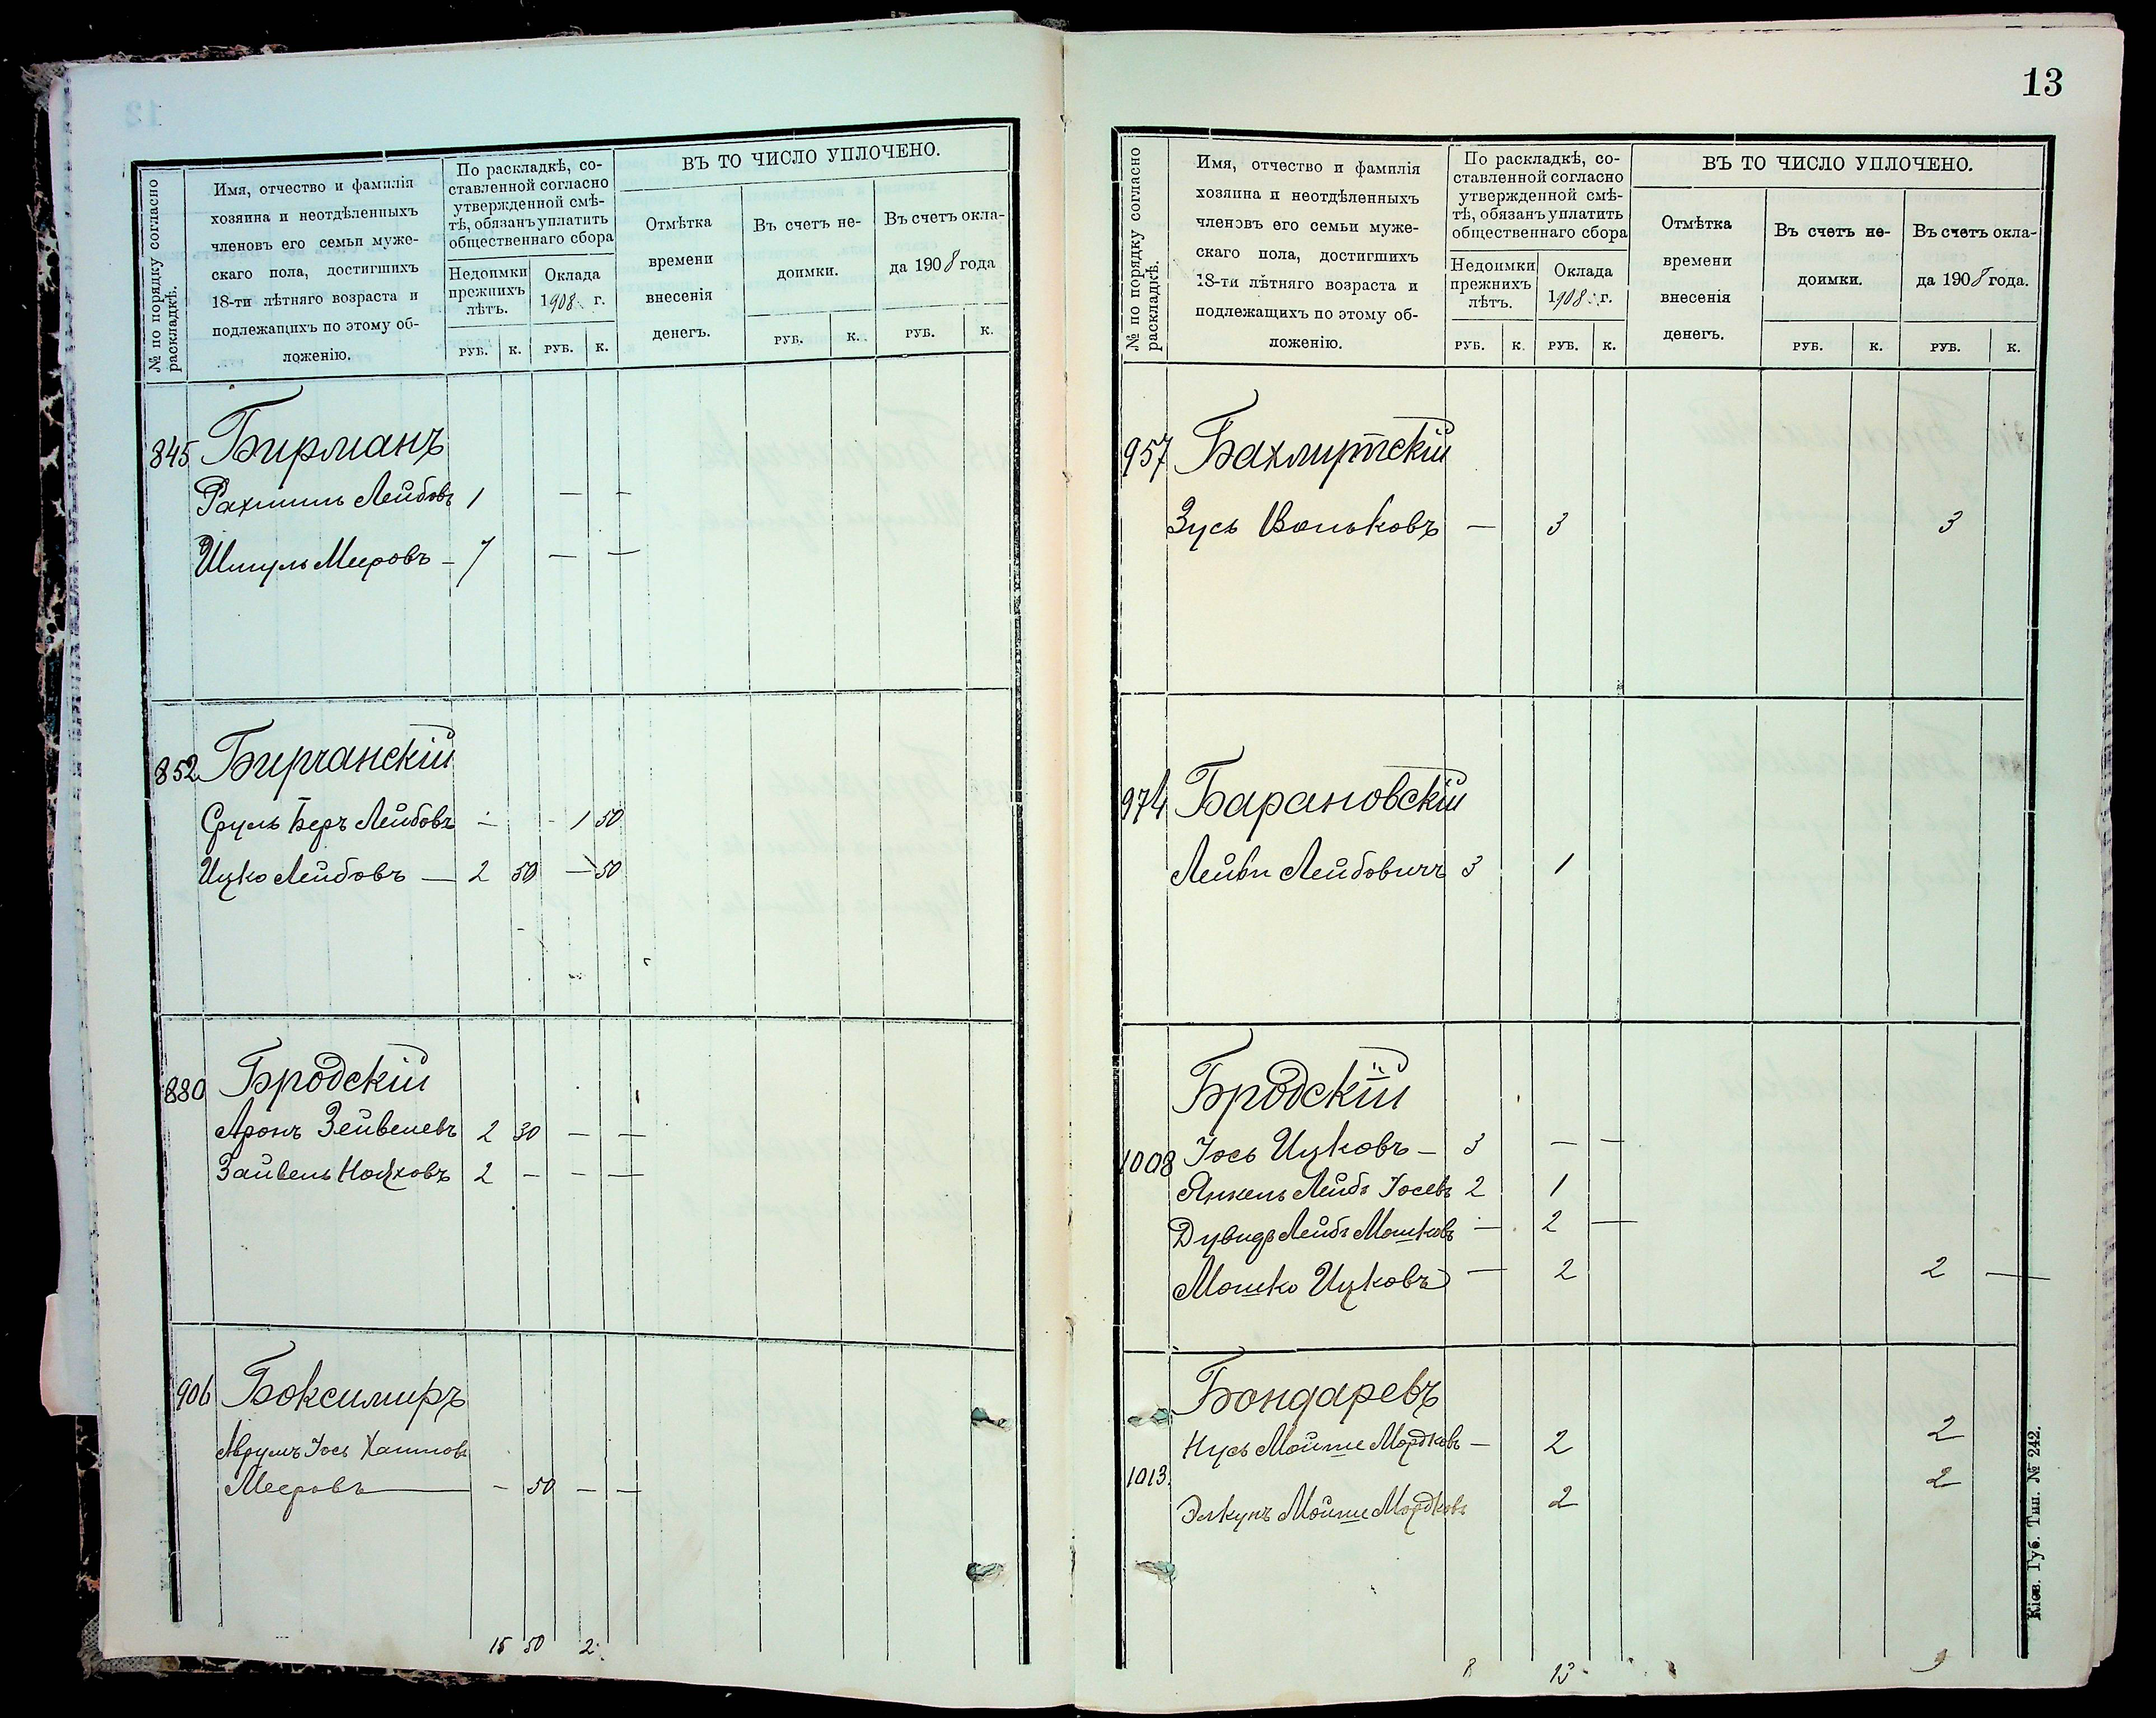 № по порядку согласно
раскладкѣ.
Имя, отчество и фамилія
хозяина и неотдѣленныхъ
членовъ его семьи муже-
скаго пола, достигшихъ
18-ти лѣтняго возраста и
подлежащихъ по этому об-
ложенію.
По раскладкѣ, со-
ставленной согласно
утвержденной смѣ-
тѣ, обязанъ уплатить
общественнаго сбора
Недоимки
прежнихъ
лѣтъ.
Оклада
1908 г.
РУБ. К. РУБ. К.
ВЪ ТО ЧИСЛО УПЛОЧЕНО.
Отмѣтка
времени
внесенія
денегъ.
Въ счетъ не-
доимки.
РУБ. К.
Въ счетъ окла-
да 1908 года
РУБ. К.
845 Бирманъ
Рахмиль Лейбовъ 1 — —
Шмуль Мееровъ - 7 — —
852 Бирчанскій
Сруль Беръ Лейбовъ - - 1 50
Ицко Лейбовъ — 2 50 — 50
880 Бродскій
Аронъ Зейвелевъ 2 30 — —
Зайвель 2 — — —
906 Боксимиръ
Аврумъ Іось Хаимовъ
Мееровъ — - 50 — —
15 50 2
13
№ по порядку согласно
раскладкѣ.
Имя, отчество и фамилія
хозяина и неотдѣленныхъ
членовъ его семьи муже-
скаго пола, достигшихъ
18-ти лѣтняго возраста и
подлежащихъ по этому об-
ложенію.
По раскладкѣ, со-
ставленной согласно
утвержденной смѣ-
тѣ, обязанъ уплатить
общественнаго сбора
Недоимки
прежнихъ
лѣтъ.
Оклада
1908 г.
РУБ. К. РУБ. К.
ВЪ ТО ЧИСЛО УПЛОЧЕНО.
Отмѣтка
времени
внесенія
денегъ.
Въ счетъ не-
доимки.
РУБ. К.
Въ счетъ окла-
да 1908 года.
РУБ. К.
957 Бахмутскій
Зусь Вольковъ — 3 3
974 Барановскій
Лейви Лейбовичъ 3 1
Бродскій
1008 Іось Ицковъ - 3 — —
Янкель Лейбъ Іосевъ 2 1
Дувидъ Лейбъ Мошковъ — 2 —
Мошко Ицковъ — 2 2 —
Бондаревъ
Нусь Мойше Мордковъ — 2 2
1013.
Элкунъ Мойше Мордковъ 2 2
8 13 9
Кіев. Губ. Тип. № 242.